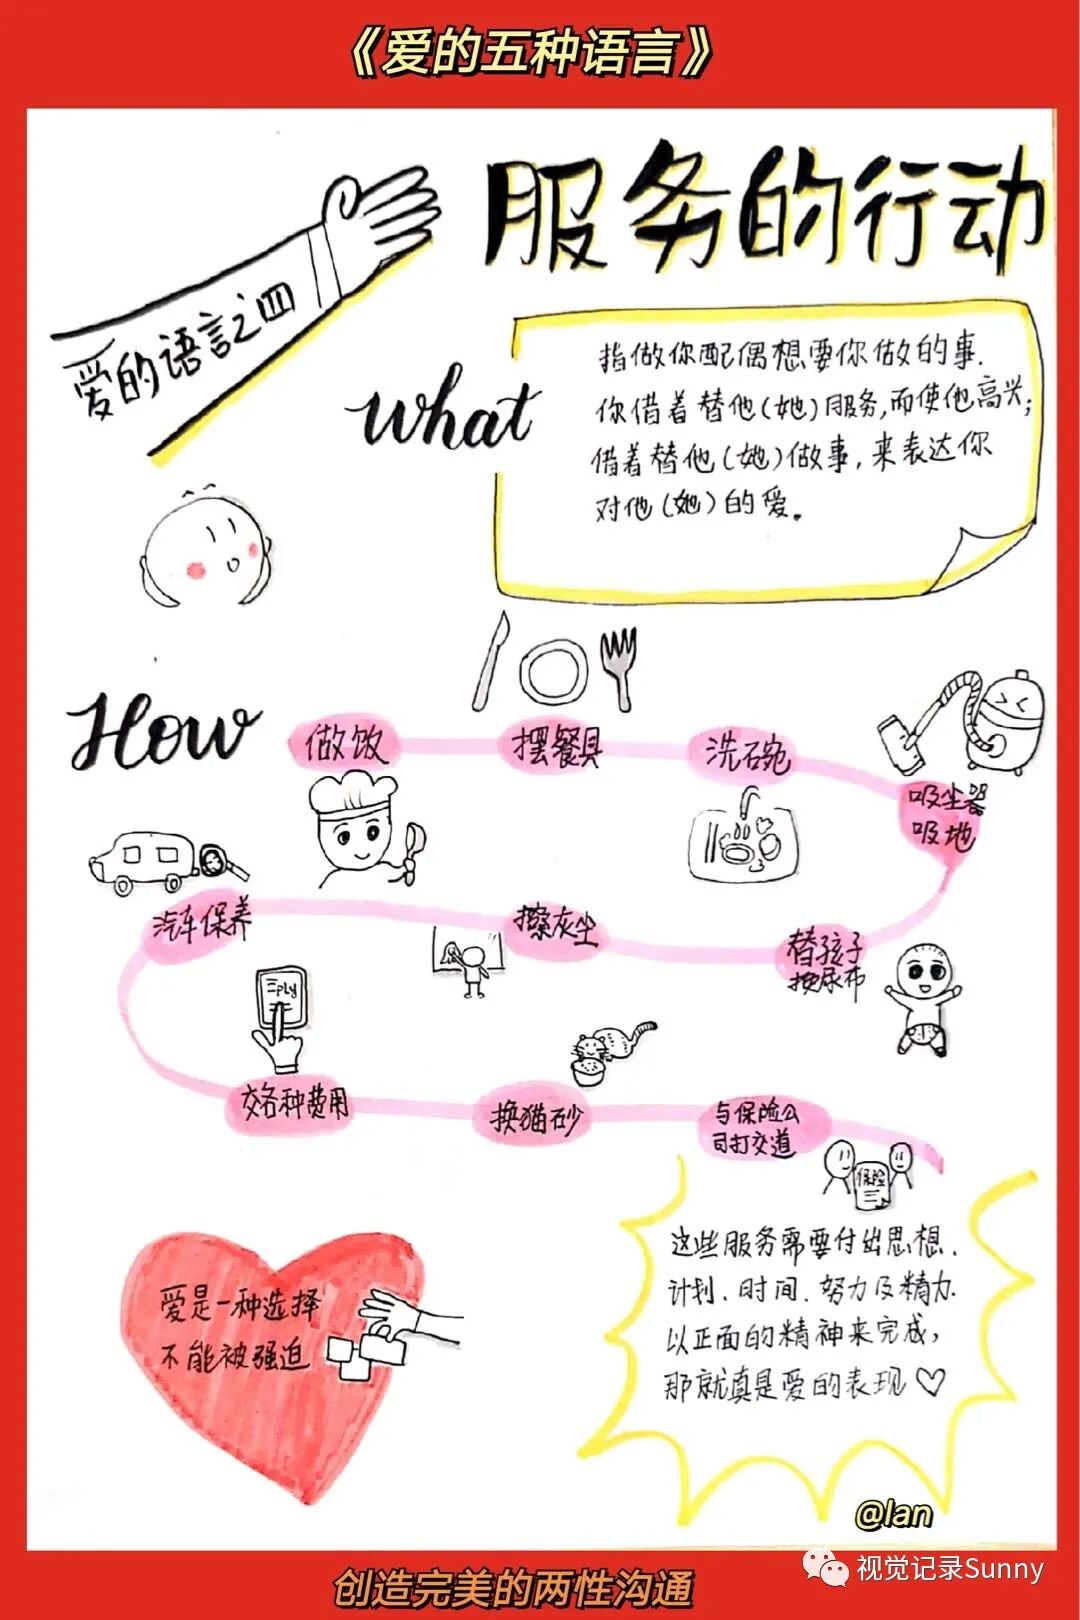 《爱的五种语言》
服务的行动
爱的语言之四
What
指做你配偶想要你做的事.
你借着替他(她)服务,而使他高兴;
借着替他(她)做事,来表达你
对他(她)的爱。
How
做饭
摆餐具
洗碗
吸尘器
吸地
汽车保养
擦灰尘
替孩子
换尿布
交各种费用
换猫砂
与保险公
司打交道
保险
爱是一种选择
不能被强迫
这些服务需要付出思想、
计划、时间、努力及精力.
以正面的精神来完成,
那就真是爱的表现♡
@lan
视觉记录Sunny
创造完美的两性沟通